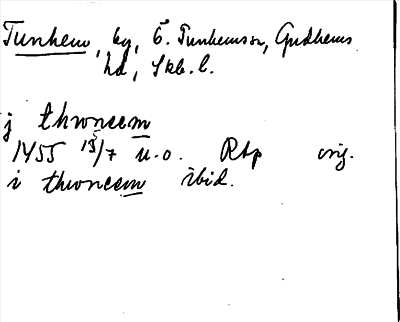 Tunhem, by, Ö. Tunhems sn, Gudhems
hd, Skb. l.
j thwneem
1455 15/7 u.o. RAp orig.
i thwneem ibid.